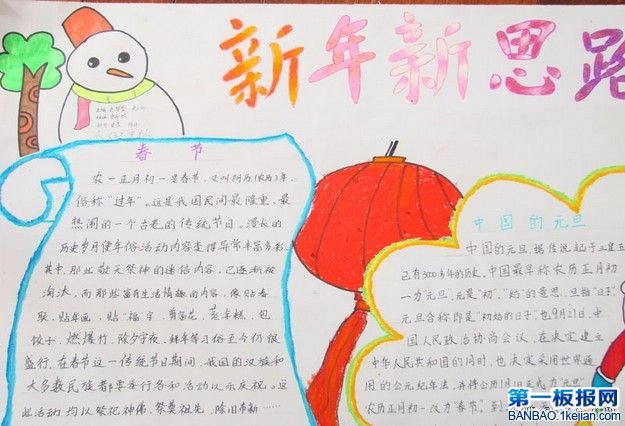 新年新思路
春节
农一正月初一是春节,又叫阴历(农历)年,
俗称"过年"。这是我国民间最隆重、最
热闹的一个古老的传统节日。漫长的
历史岁月使年俗活动内容变得异常丰富多彩
其中,那些敬天祭神的迷信内容,已逐渐被
淘汰,而那些富有生活情趣的内容,像贴春
联、贴年画,贴"福"字,剪窗花,蒸年糕、包
饺子、燃爆竹,除夕守夜、拜年等习俗至今仍很
盛行。在春节这一传统节日期间,我国的汉族和
大多数民族者都要举行各和活动以示庆祝。这
些活动均以祭祀神佛,祭奠祖先,除旧布新……
中国的元旦
中国的元旦,据传说起于三皇五
已有3000多年的历史,中国最早称农历正月初
一为元旦",元是"初"、"始"的意思,旦指"日子"
元旦合称即是"初始的日子",也9月21日,中
国人民政治协商会议,在决定建立
中华人民共和国的同时,也决定采用世界通
用的公元纪年法,并将公历1月1日正式为"元旦"
农历正月初一改为"春节"。到
第一板报网
BANBAO.1kejian.com